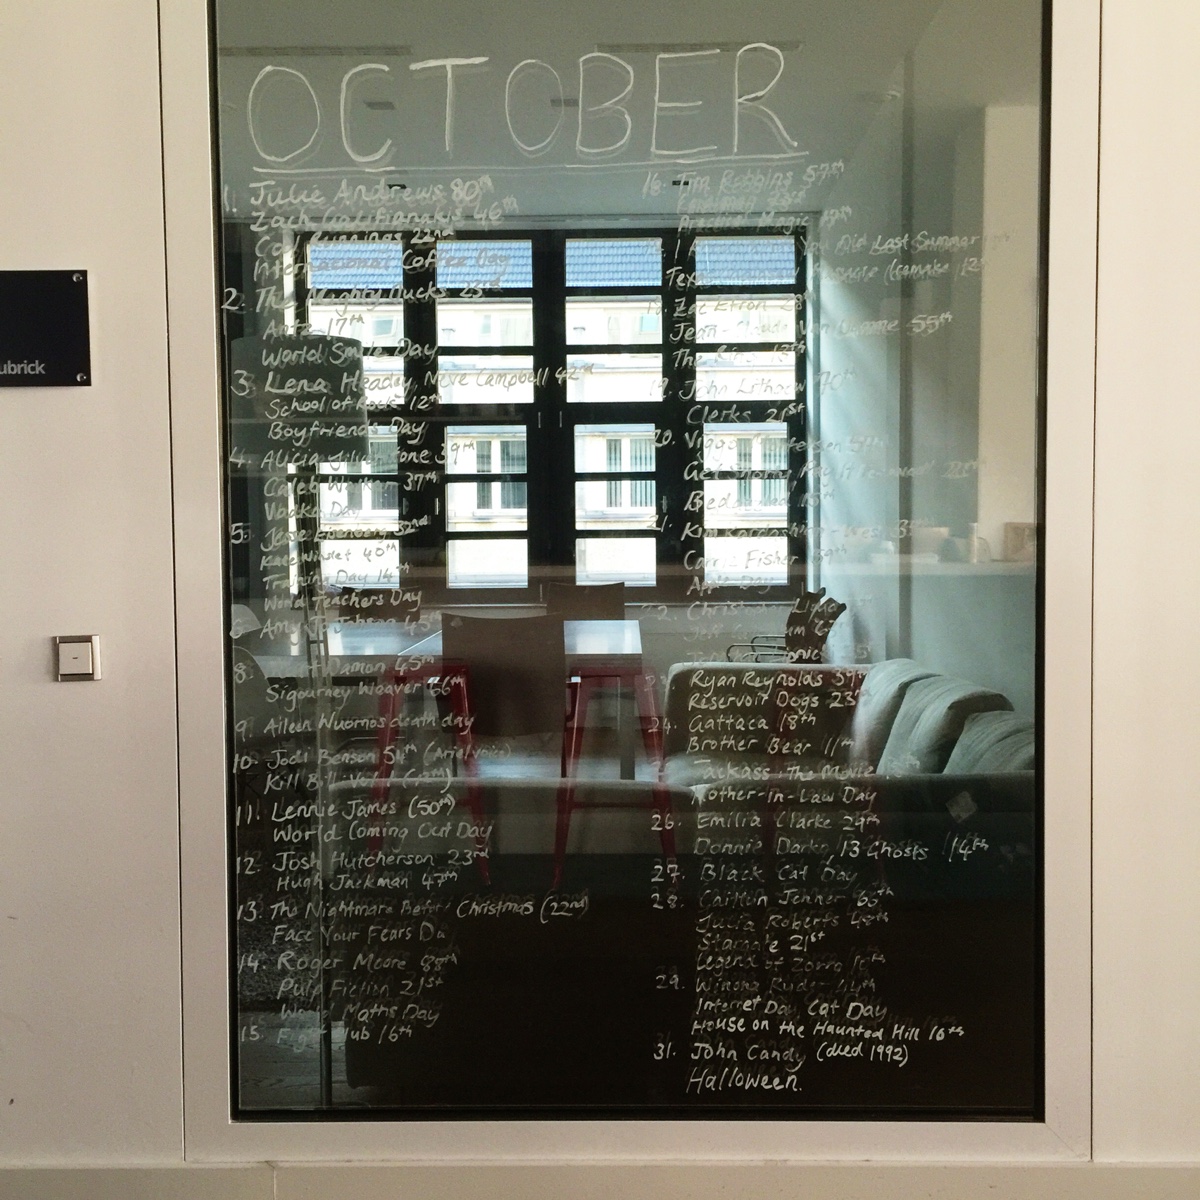 OCTOBER
1. Julie Andrews 80th
Zach Galifianakis 46th
Cool Runnings 22nd
International Coffee Day
2. The Mighty Ducks 23rd
Antz 17th
World Smile Day
3. Lena Headey, Neve Campbell 42nd
School of Rock 12th
Boyfriends Day
4. Alicia Silverstone 39th
Caleb 37th
Vodka Day
5. Jesse Eisenberg 32nd
Kate Winslet 40th
Training Day 14th
World Teachers Day
6. Amy Jo Johnson 45th
8. Matt Damon 45th
Sigourney Weaver 66th
9. Aileen Wuornos death day
10. Jodi Benson 54th (Ariel voice)
Kill Bill: Vol. 1
11. Lennie James (50th)
World Coming Out Day
12. Josh Hutcherson 23rd
Hugh Jackman 47th
13. The Nightmare Before Christmas (22nd)
Face Your Fears Da
14. Roger Moore 88th
Pulp Fiction 21st
World Maths Day
15. Fight Club 16th
16. Tim Robbins 57th
Practical Magic 17th
I You Did Last Summer
(remake 12th
Zac Efron 28th
Jean-Claude Van Damme 55th
The Ring 13th
19. John Lithgow 70th
Clerks 21st
20. Viggo
Get Shorty, Pay It
Bedazzled 15th
21. Kim Kardashian-West
Carrie Fisher 59th
Apple Day
22. Christopher
Ryan Reynolds 39th
Reservoir Dogs 23rd
24. Gattaca 18th
Brother Bear 11th
Jackass: The Movie
Mother-in-Law Day
26. Emilia Clarke 29th
Donnie Darko, 13 Ghosts 14th
27. Black Cat Day
28. Caitlyn Jenner 65th
Julia Roberts 48th
Stargate 21st
Legend of Zorro 10th
29. Winona Ryder 44th
Internet Day, Cat Day
House on the Haunted Hill 16th
31. John Candy (died 1992)
Halloween.
ubrick